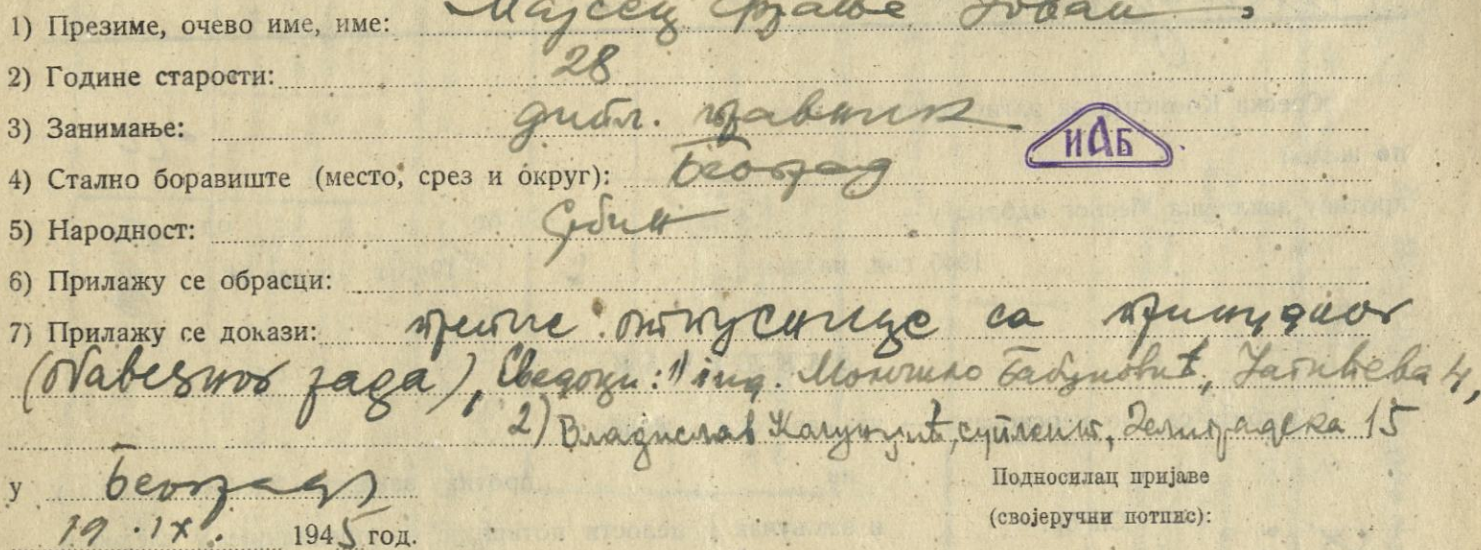 1) Презиме, очево име, име: Мајсец Фрање Јован
2) Године старости: 28
3) Занимање: дипл. правник
ИАБ
4) Стално боравиште (место, срез и округ): Београд
5) Народност: Србин
6) Прилажу се обрасци:
7) Прилажу се докази: препис отпуснице са принудног
(обавезног рада), Сведоци: 1) инд. Момчило Бабуновић, 4,
2) Владислав суплент, Зелградска 15
у Београду
Подносилац пријаве
(својеручни потпис):
19. IX. 1945 год.